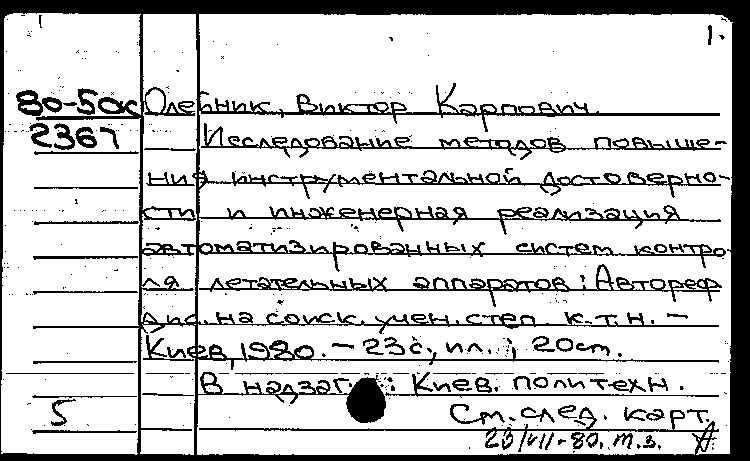 1.
80-50к Олейник, Виктор Карпович.
2367 Исследование методов повыше-
ния инструментальной достоверно-
сти и инженерная реализация
автоматизированных систем контро-
ля летательных аппаратов: Автореф
дис. на соиск. учен. степ. к.т.н. –
Киев, 1980. – 23с, ил.; 20см.
В надзаг.: Киев. политехн.
5 См. след. карт.
23/VII-80. т.з.